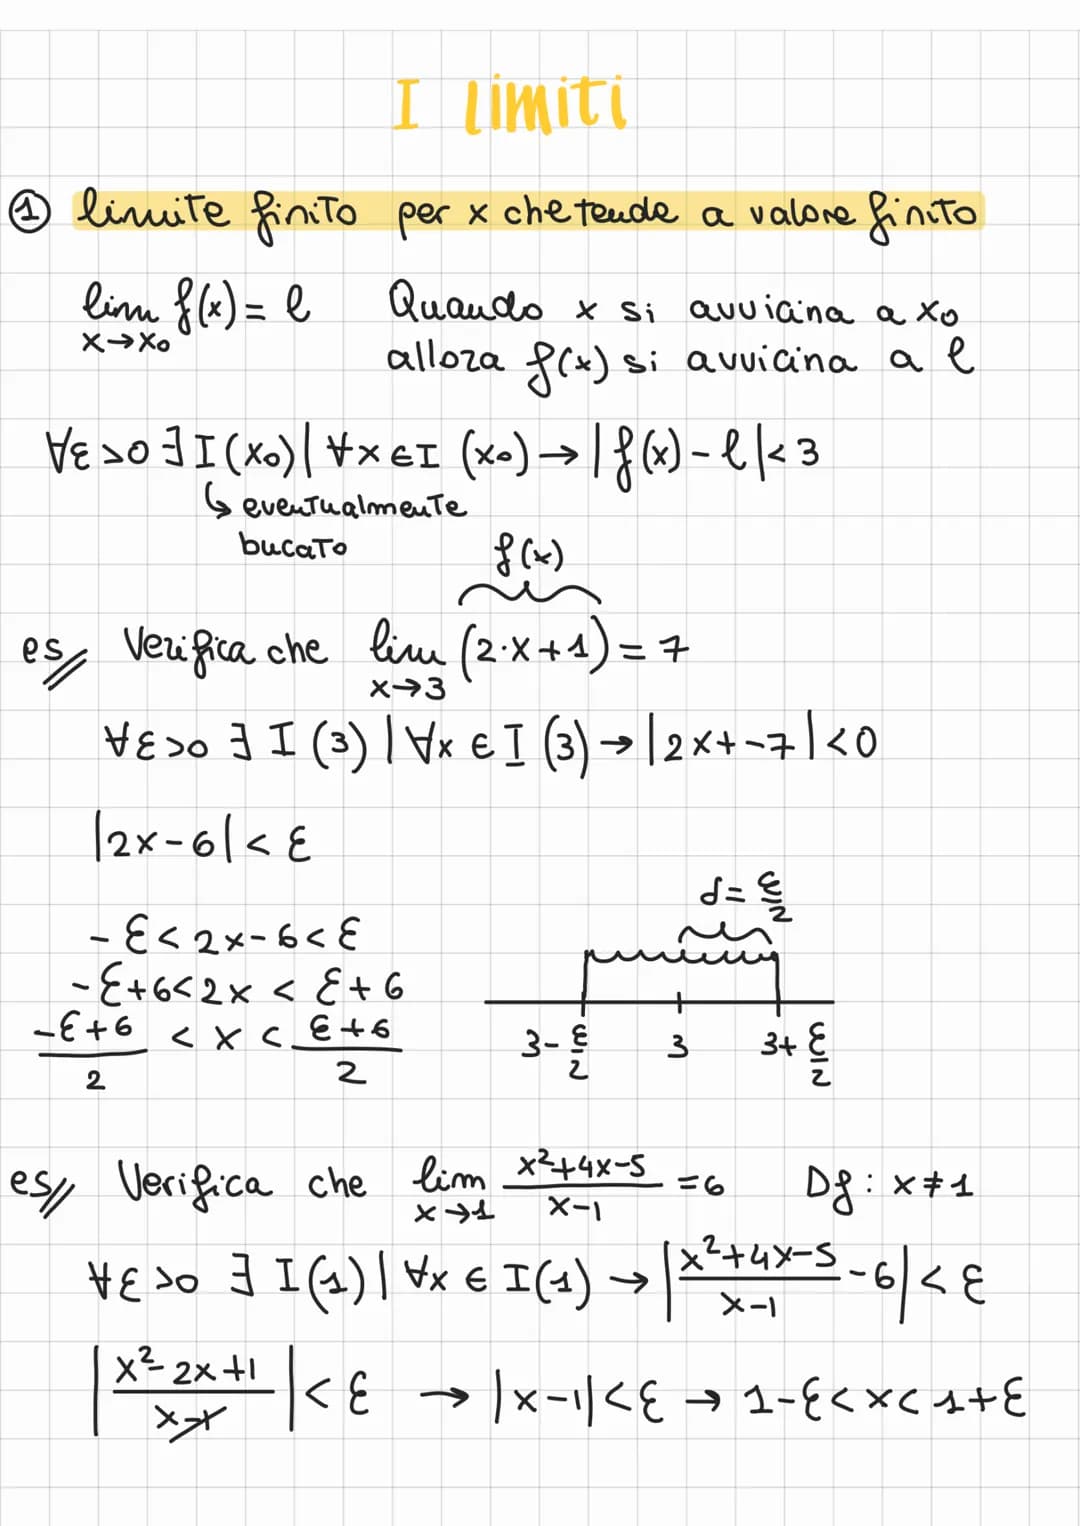 I limiti
① limite finito per x che tende a valore finito
lim f(x) = l Quando x si avvicina a x₀
x→x₀ allora f(x) si avvicina a l
∀ε>0 ∃ I(x₀) | ∀x ∈ I (x₀) → | f(x) - l | < 3
↳ eventualmente
bucato
f(x)
es// Verifica che lim (2·x+1) = 7
x→3
∀ε>0 ∃ I (3) | ∀x ∈ I (3) → |2x+-7| < 0
|2x-6| < ε
d = ε/2
-ε < 2x-6 < ε
-ε+6 < 2x < ε+6
(-ε+6)/2 < x < (ε+6)/2
3-ε/2 3 3+ε/2
es// Verifica che lim (x²+4x-5)/(x-1) = 6 Df: x≠1
x→1
∀ε>0 ∃ I(1) | ∀x ∈ I(1) → |(x²+4x-5)/(x-1) -6| < ε
|(x²-2x+1)/(x-1)| < ε → |x-1| < ε → 1-ε < x < 1+ε